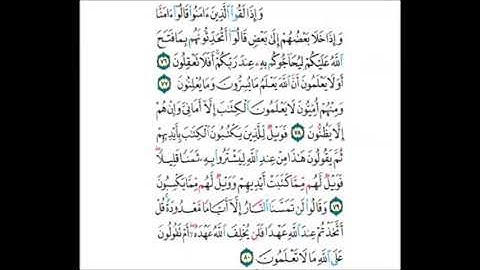 وَإِذَا لَقُوا۟ ٱلَّذِينَ ءَامَنُوا۟ قَالُوٓا۟ ءَامَنَّا
وَإِذَا خَلَا بَعْضُهُمْ إِلَىٰ بَعْضٍ قَالُوٓا۟ أَتُحَدِّثُونَهُم بِمَا فَتَحَ
ٱللَّهُ عَلَيْكُمْ لِيُحَآجُّوكُم بِهِۦ عِندَ رَبِّكُمْ ۚ أَفَلَا تَعْقِلُونَ ٧٦
أَوَلَا يَعْلَمُونَ أَنَّ ٱللَّهَ يَعْلَمُ مَا يُسِرُّونَ وَمَا يُعْلِنُونَ ٧٧
وَمِنْهُمْ أُمِّيُّونَ لَا يَعْلَمُونَ ٱلْكِتَٰبَ إِلَّآ أَمَانِىَّ وَإِنْ هُمْ
إِلَّا يَظُنُّونَ ٧٨ فَوَيْلٌ لِّلَّذِينَ يَكْتُبُونَ ٱلْكِتَٰبَ بِأَيْدِيهِمْ
ثُمَّ يَقُولُونَ هَٰذَا مِنْ عِندِ ٱللَّهِ لِيَشْتَرُوا۟ بِهِۦ ثَمَنًا قَلِيلًا ۖ
فَوَيْلٌ لَّهُم مِّمَّا كَتَبَتْ أَيْدِيهِمْ وَوَيْلٌ لَّهُم مِّمَّا يَكْسِبُونَ
٧٩ وَقَالُوا۟ لَن تَمَسَّنَا ٱلنَّارُ إِلَّآ أَيَّامًا مَّعْدُودَةً ۚ قُلْ
أَتَّخَذْتُمْ عِندَ ٱللَّهِ عَهْدًا فَلَن يُخْلِفَ ٱللَّهُ عَهْدَهُۥٓ ۖ أَمْ تَقُولُونَ
عَلَى ٱللَّهِ مَا لَا تَعْلَمُونَ ٨٠